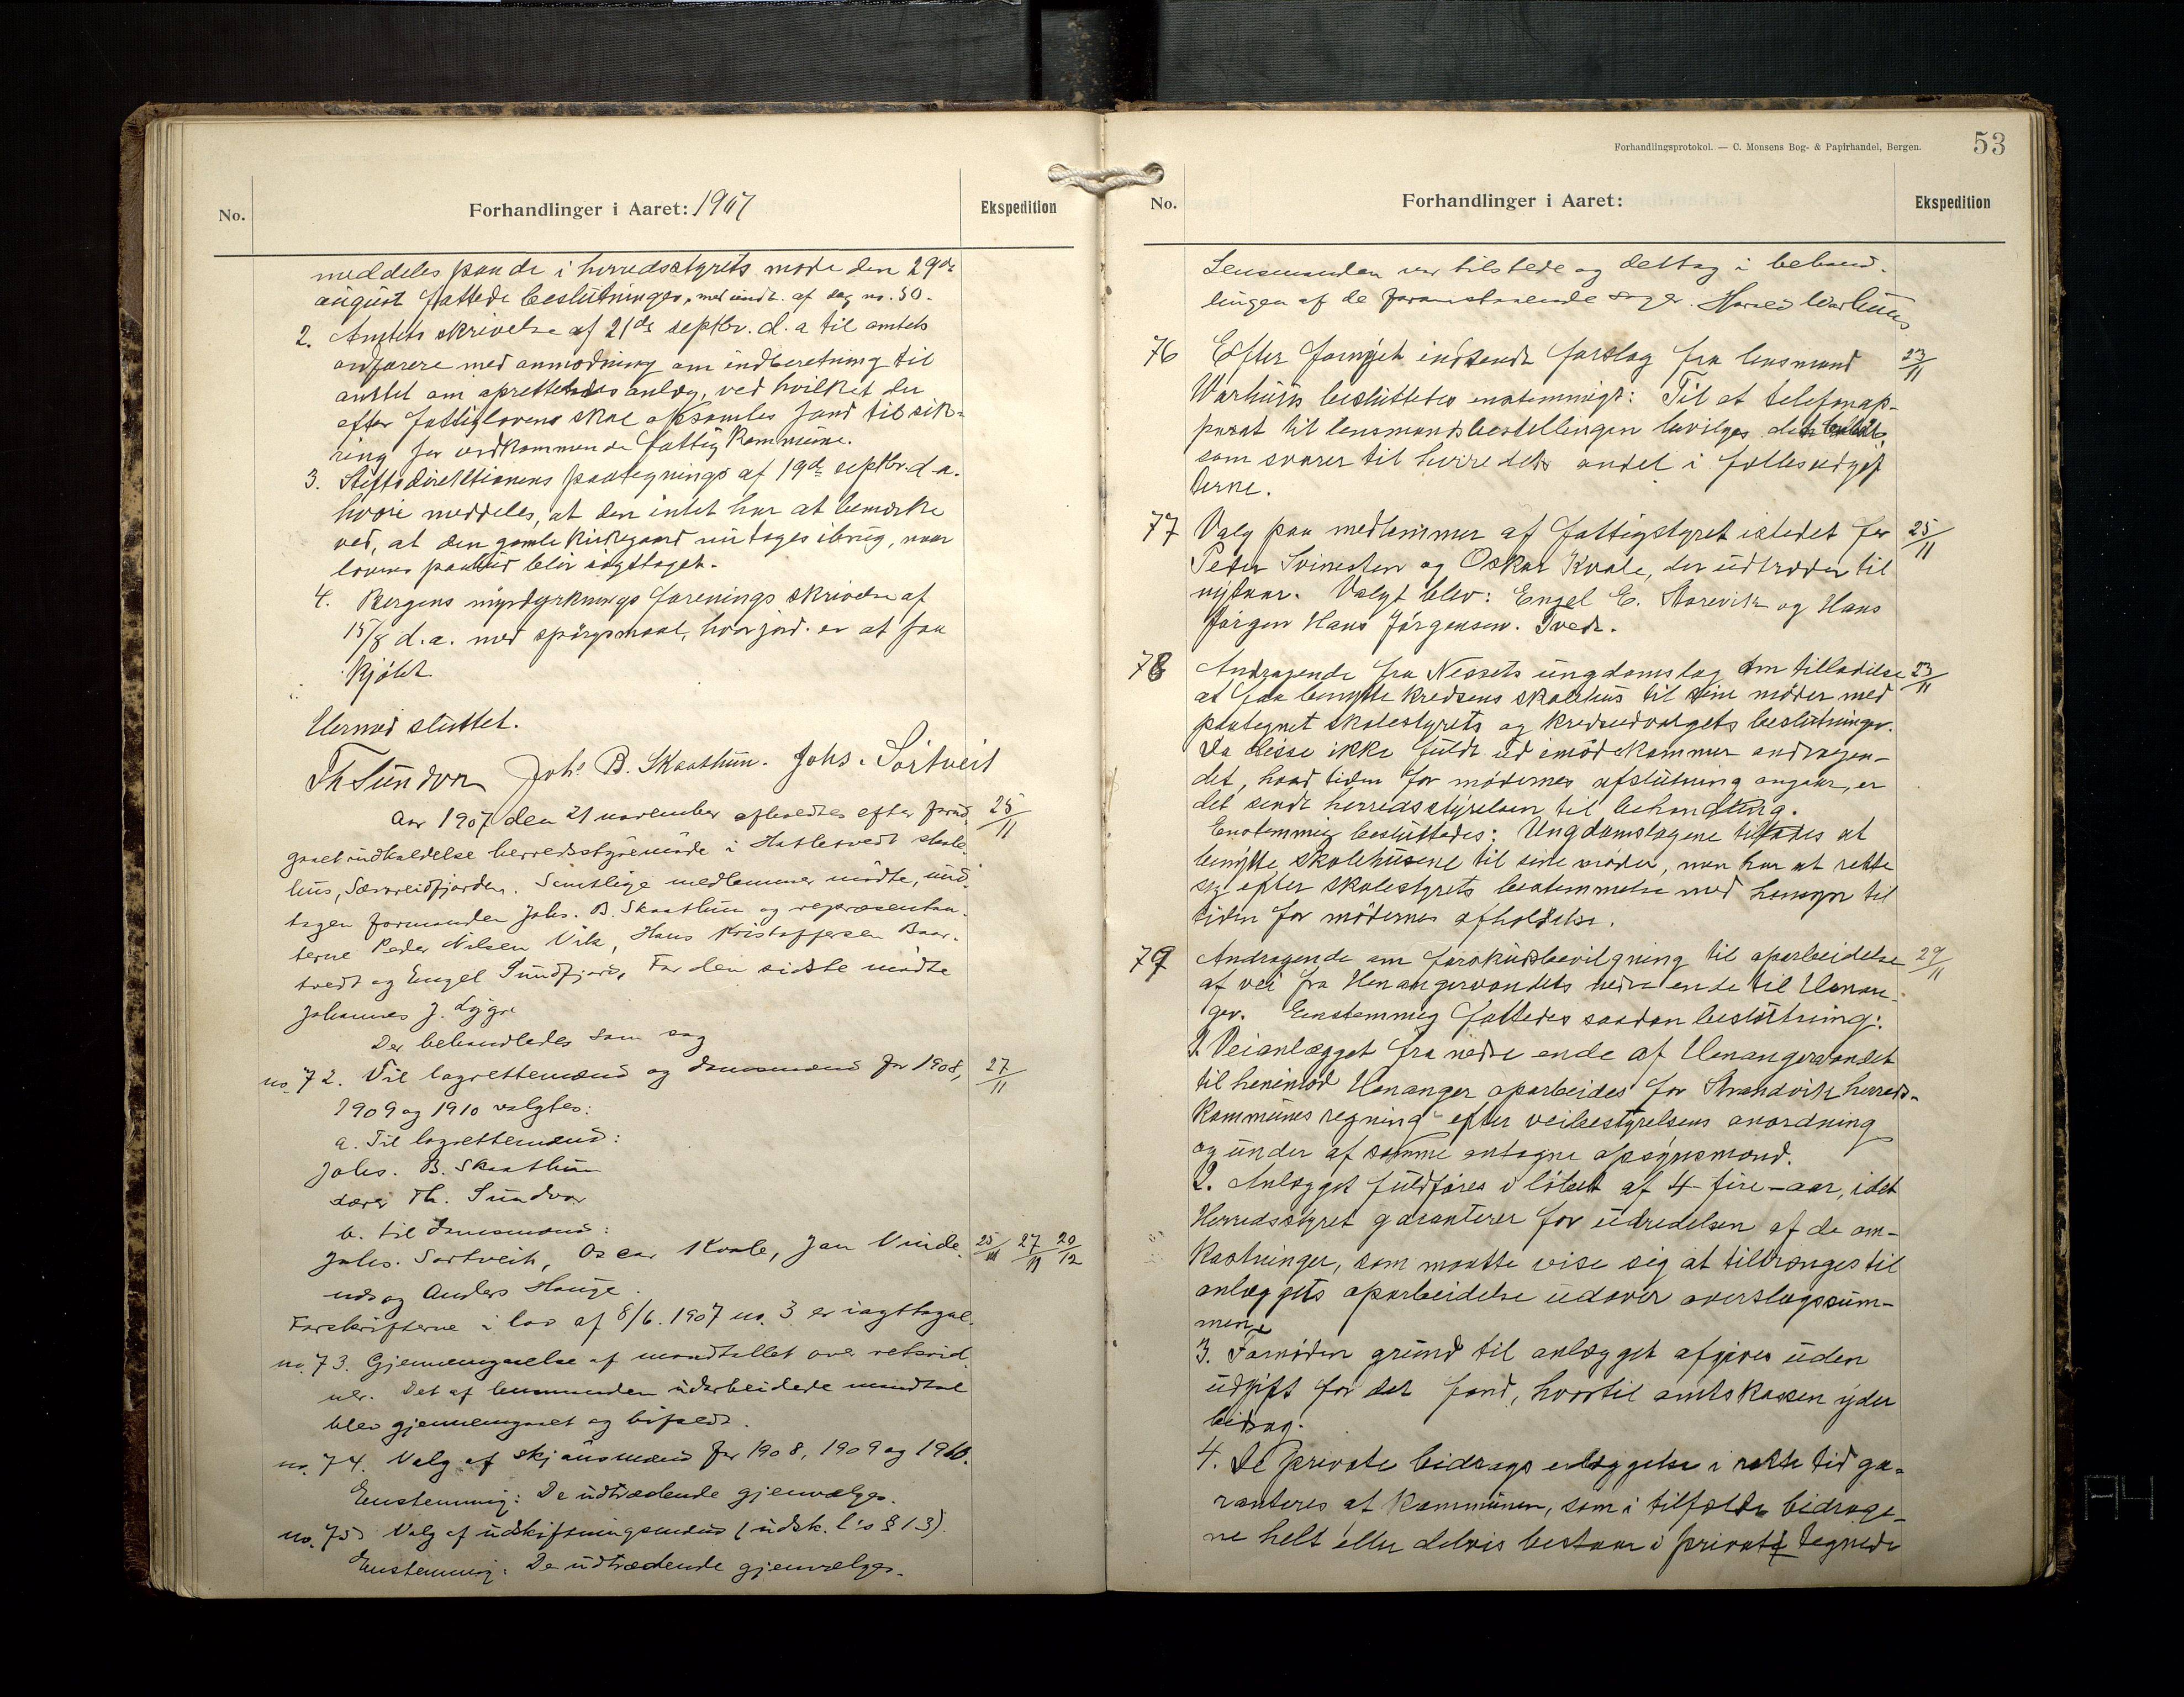 No.
Forhandlinger i Aaret: 1907
Ekspedition
meddeles paa de i herredsstyrets møde den 29de
august fattede beslutninger, med undt. af sag no. 50.
2. Amtets skrivelse af 21de septbr. d. a til amtets
ordførere med anmodning om indberetning til
amtet om oprettelse anlæg, ved hvilket der
efter fattiglovens skal opsamles fond til sik-
ring for vedkommende fattigkommune.
3. Stiftsdirektionens paategnings af 19de septbr. d. a.
hvori meddeles, at den intet har at bemærke
ved, at den gamle kirkegaard nu tages ibrug, naar
lovens paabud blir iagttaget.
4. Bergens myrdyrknings forenings skrivelse af
15/8 d. a. med spørgsmaal, hvor jord er at faa
kjøbt.
Hermed sluttet.
Th Sundvor Johs B. Skaathun. Johs. Sörtveit
Aar 1907 den 21 november afholdtes efter forud- 25/11
gaaet indkaldelse herredsstyremøde i Hatletvedt skole-
hus, Sævareidfjorden. Samtlige medlemmer mødte, und-
tagen formanden Johs. B. Skaathun og repræsentan-
terne Peder Nilsen Vik, Hans Kristoffersen Baar-
tvedt og Engel Sundfjord. For den sidste mødte
Johannes J. Lygre
Der behandledes som sag
no. 72. Til lagrettemænd og domsmænd for 1908, 27/11
1909 og 1910 valgtes:
a. Til lagrettemænd:
Johs. B. Skaathun
lærer Th. Sundvor
b. til domsmænd:
Johs. Sørtveit, Oscar Kvale, Jan Vinde- 25/11 27/11 20/12
næs og Anders Hauge.
Forskrifterne i lov af 8/6. 1907 no. 3 er iagttaget.
no. 73. Gjennemgaaelse af mandtallet over retsvid-
ner. Det af lensmanden udarbeidede mandtal
blev gjennemgaaet og bifaldt.
no. 74. Valg af skjønsmænd for 1908, 1909 og 1910.
Enstemmig: De udtrædende gjenvælges.
no. 75 Valg af udskiftningsmænd (udsk. l's § 13).
Enstemmig: De udtrædende gjenvælges.
Forhandlingsprotokol. — C. Monsens Bog- & Papirhandel, Bergen.
53
No.
Forhandlinger i Aaret:
Ekspedition
Lensmanden var tilstede og deltog i behand-
lingen af de foranstaaende sager. Harald Warhuus
76 Efter fornyet indsendt forslag fra lensmand 23/11
Warhuus besluttedes enstemmigt: Til et telefonap-
parat til lensmandsbestellingen bevilges det beløb,
som svarer til herredets andel i fællesudgif
terne.
77 Valg paa medlemmer af fattigstyret istedet for 25/11
Peder Svinesten og Oskar Kvale, der udtræder til
nytaar. Valgt blev: Engel E. Storevik og Hans
Jørgen Hans Jörgensen. Tvedt.
78 Andragende fra Nessets ungdomslag om tilladelse 23/11
at faa benytte kredsens skolehus til sine møder med
paategnet skolestyrets og kredsudvalgets beslutninger.
Da disse ikke fuldt ud imødekommer andragen-
det, hvad tiden for mødernes afslutning angaar, er
det sendt herredsstyrelsen til behandling.
Enstemmig besluttedes: Ungdomslagene tillades at
benytte skolehusene til sine møder, men har at rette
sig efter skolestyrets bestemmelse med hensyn til
tiden for mødernes afholdelse.
79 Andragende om forskudsbevilgning til oparbeidelse 29/11
af vei fra Henangervandets nedre ende til Henan-
ger. Enstemmig fattedes saadan beslutning:
1. Veianlægget fra nedre ende af Henangervandet
til henimod Henanger oparbeides for Strandvik herreds-
kommunes regning efter veibestyrelsens anordning
og under af samme antagne opsynsmand.
2. Anlægget fuldføres i løbet af 4 fire-aar, idet
Herredsstyret garanterer for udredelsen af de om-
kostninger, som maatte vise sig at tiltrænges til
anlæggets oparbeidelse udover overslagssum-
men.
3. Fornøden grund til anlægget afgives uden
udgift for det fond, hvortil amtskassen yder
bidrag.
4. De private bidrags erlæggelse i rette tid ga-
ranteres af kommunen, som i tilfælde bidrage-
ne helt eller delvis bestaar i privat tegnede